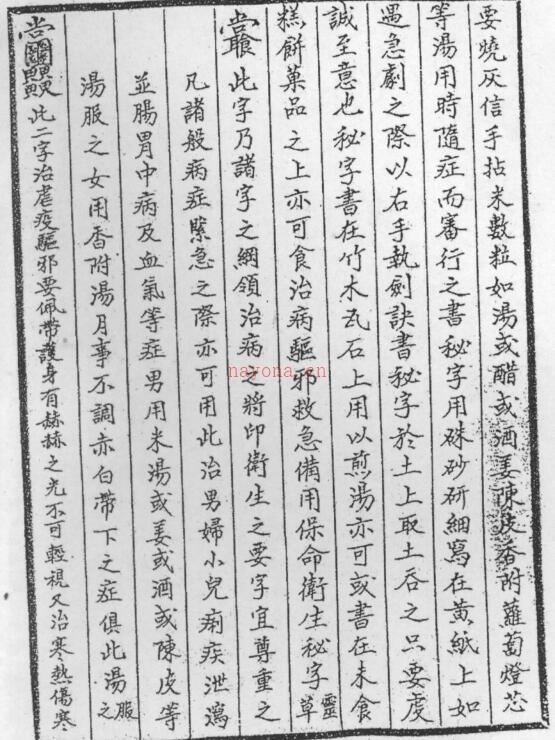 要燒灰信手拈米數粒如湯或醋或酒姜陳皮香附蘿蔔燈芯
等湯用時隨症而審行之書秘字用硃砂研細寫在黃紙上如
遇急劇之際以右手執劍訣書秘字於土上取土吞之只要虔
誠至意也秘字書在竹木瓦石上用以煎湯亦可或書在未食
糕餅菓品之上亦可食治病驅邪救急備用保命衛生秘字靈草
此字乃諸字之綱領治病之將印衛生之要字宜尊重之
凡諸般病症緊急之際亦可用此治男婦小兒痢疾泄瀉
並腸胃中病及血氣等症男用米湯或姜或酒或陳皮等
湯服之女用香附湯月事不調赤白帶下之症俱此湯服之
此二字治虐疫驅邪要佩帶護身有赫赫之光不可輕視又治寒熱傷寒
nayona.cn